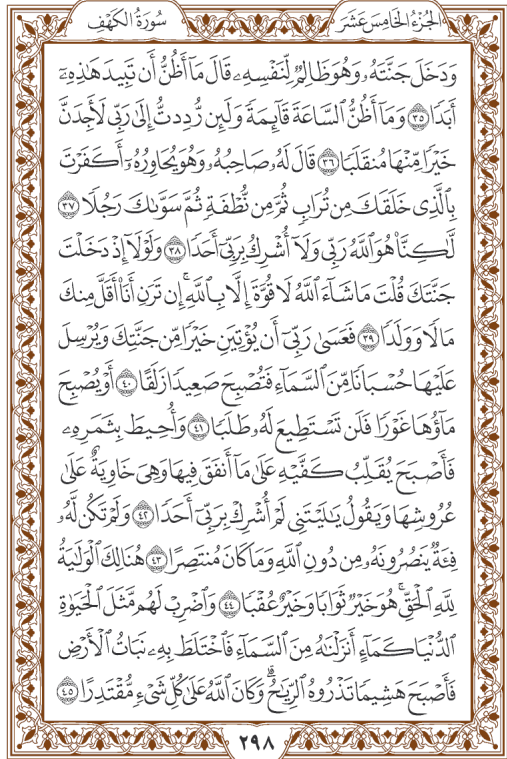 الجزء الخامس عشر
سورة الكهف
وَدَخَلَ جَنَّتَهُۥ وَهُوَ ظَالِمٌ لِّنَفْسِهِۦ قَالَ مَآ أَظُنُّ أَن تَبِيدَ هَٰذِهِۦٓ
أَبَدًا ٣٥ وَمَآ أَظُنُّ ٱلسَّاعَةَ قَآئِمَةً وَلَئِن رُّدِدتُّ إِلَىٰ رَبِّي لَأَجِدَنَّ
خَيْرًا مِّنْهَا مُنقَلَبًا ٣٦ قَالَ لَهُۥ صَاحِبُهُۥ وَهُوَ يُحَاوِرُهُۥٓ أَكَفَرْتَ
بِٱلَّذِي خَلَقَكَ مِن تُرَابٍ ثُمَّ مِن نُّطْفَةٍ ثُمَّ سَوَّىٰكَ رَجُلًا ٣٧
لَّٰكِنَّا۠ هُوَ ٱللَّهُ رَبِّي وَلَآ أُشْرِكُ بِرَبِّيٓ أَحَدًا ٣٨ وَلَوْلَآ إِذْ دَخَلْتَ
جَنَّتَكَ قُلْتَ مَا شَآءَ ٱللَّهُ لَا قُوَّةَ إِلَّا بِٱللَّهِۚ إِن تَرَنِ أَنَا۠ أَقَلَّ مِنكَ
مَالًا وَوَلَدًا ٣٩ فَعَسَىٰ رَبِّيٓ أَن يُؤْتِيَنِ خَيْرًا مِّن جَنَّتِكَ وَيُرْسِلَ
عَلَيْهَا حُسْبَانًا مِّنَ ٱلسَّمَآءِ فَتُصْبِحَ صَعِيدًا زَلَقًا ٤٠ أَوْ يُصْبِحَ
مَآؤُهَا غَوْرًا فَلَن تَسْتَطِيعَ لَهُۥ طَلَبًا ٤١ وَأُحِيطَ بِثَمَرِهِۦ
فَأَصْبَحَ يُقَلِّبُ كَفَّيْهِ عَلَىٰ مَآ أَنفَقَ فِيهَا وَهِيَ خَاوِيَةٌ عَلَىٰ
عُرُوشِهَا وَيَقُولُ يَٰلَيْتَنِي لَمْ أُشْرِكْ بِرَبِّيٓ أَحَدًا ٤٢ وَلَمْ تَكُن لَّهُۥ
فِئَةٌ يَنصُرُونَهُۥ مِن دُونِ ٱللَّهِ وَمَا كَانَ مُنتَصِرًا ٤٣ هُنَالِكَ ٱلْوَلَٰيَةُ
لِلَّهِ ٱلْحَقِّۚ هُوَ خَيْرٌ ثَوَابًا وَخَيْرٌ عُقْبًا ٤٤ وَٱضْرِبْ لَهُم مَّثَلَ ٱلْحَيَوٰةِ
ٱلدُّنْيَا كَمَآءٍ أَنزَلْنَٰهُ مِنَ ٱلسَّمَآءِ فَٱخْتَلَطَ بِهِۦ نَبَاتُ ٱلْأَرْضِ
فَأَصْبَحَ هَشِيمًا تَذْرُوهُ ٱلرِّيَٰحُۗ وَكَانَ ٱللَّهُ عَلَىٰ كُلِّ شَيْءٍ مُّقْتَدِرًا ٤٥
٢٩٨